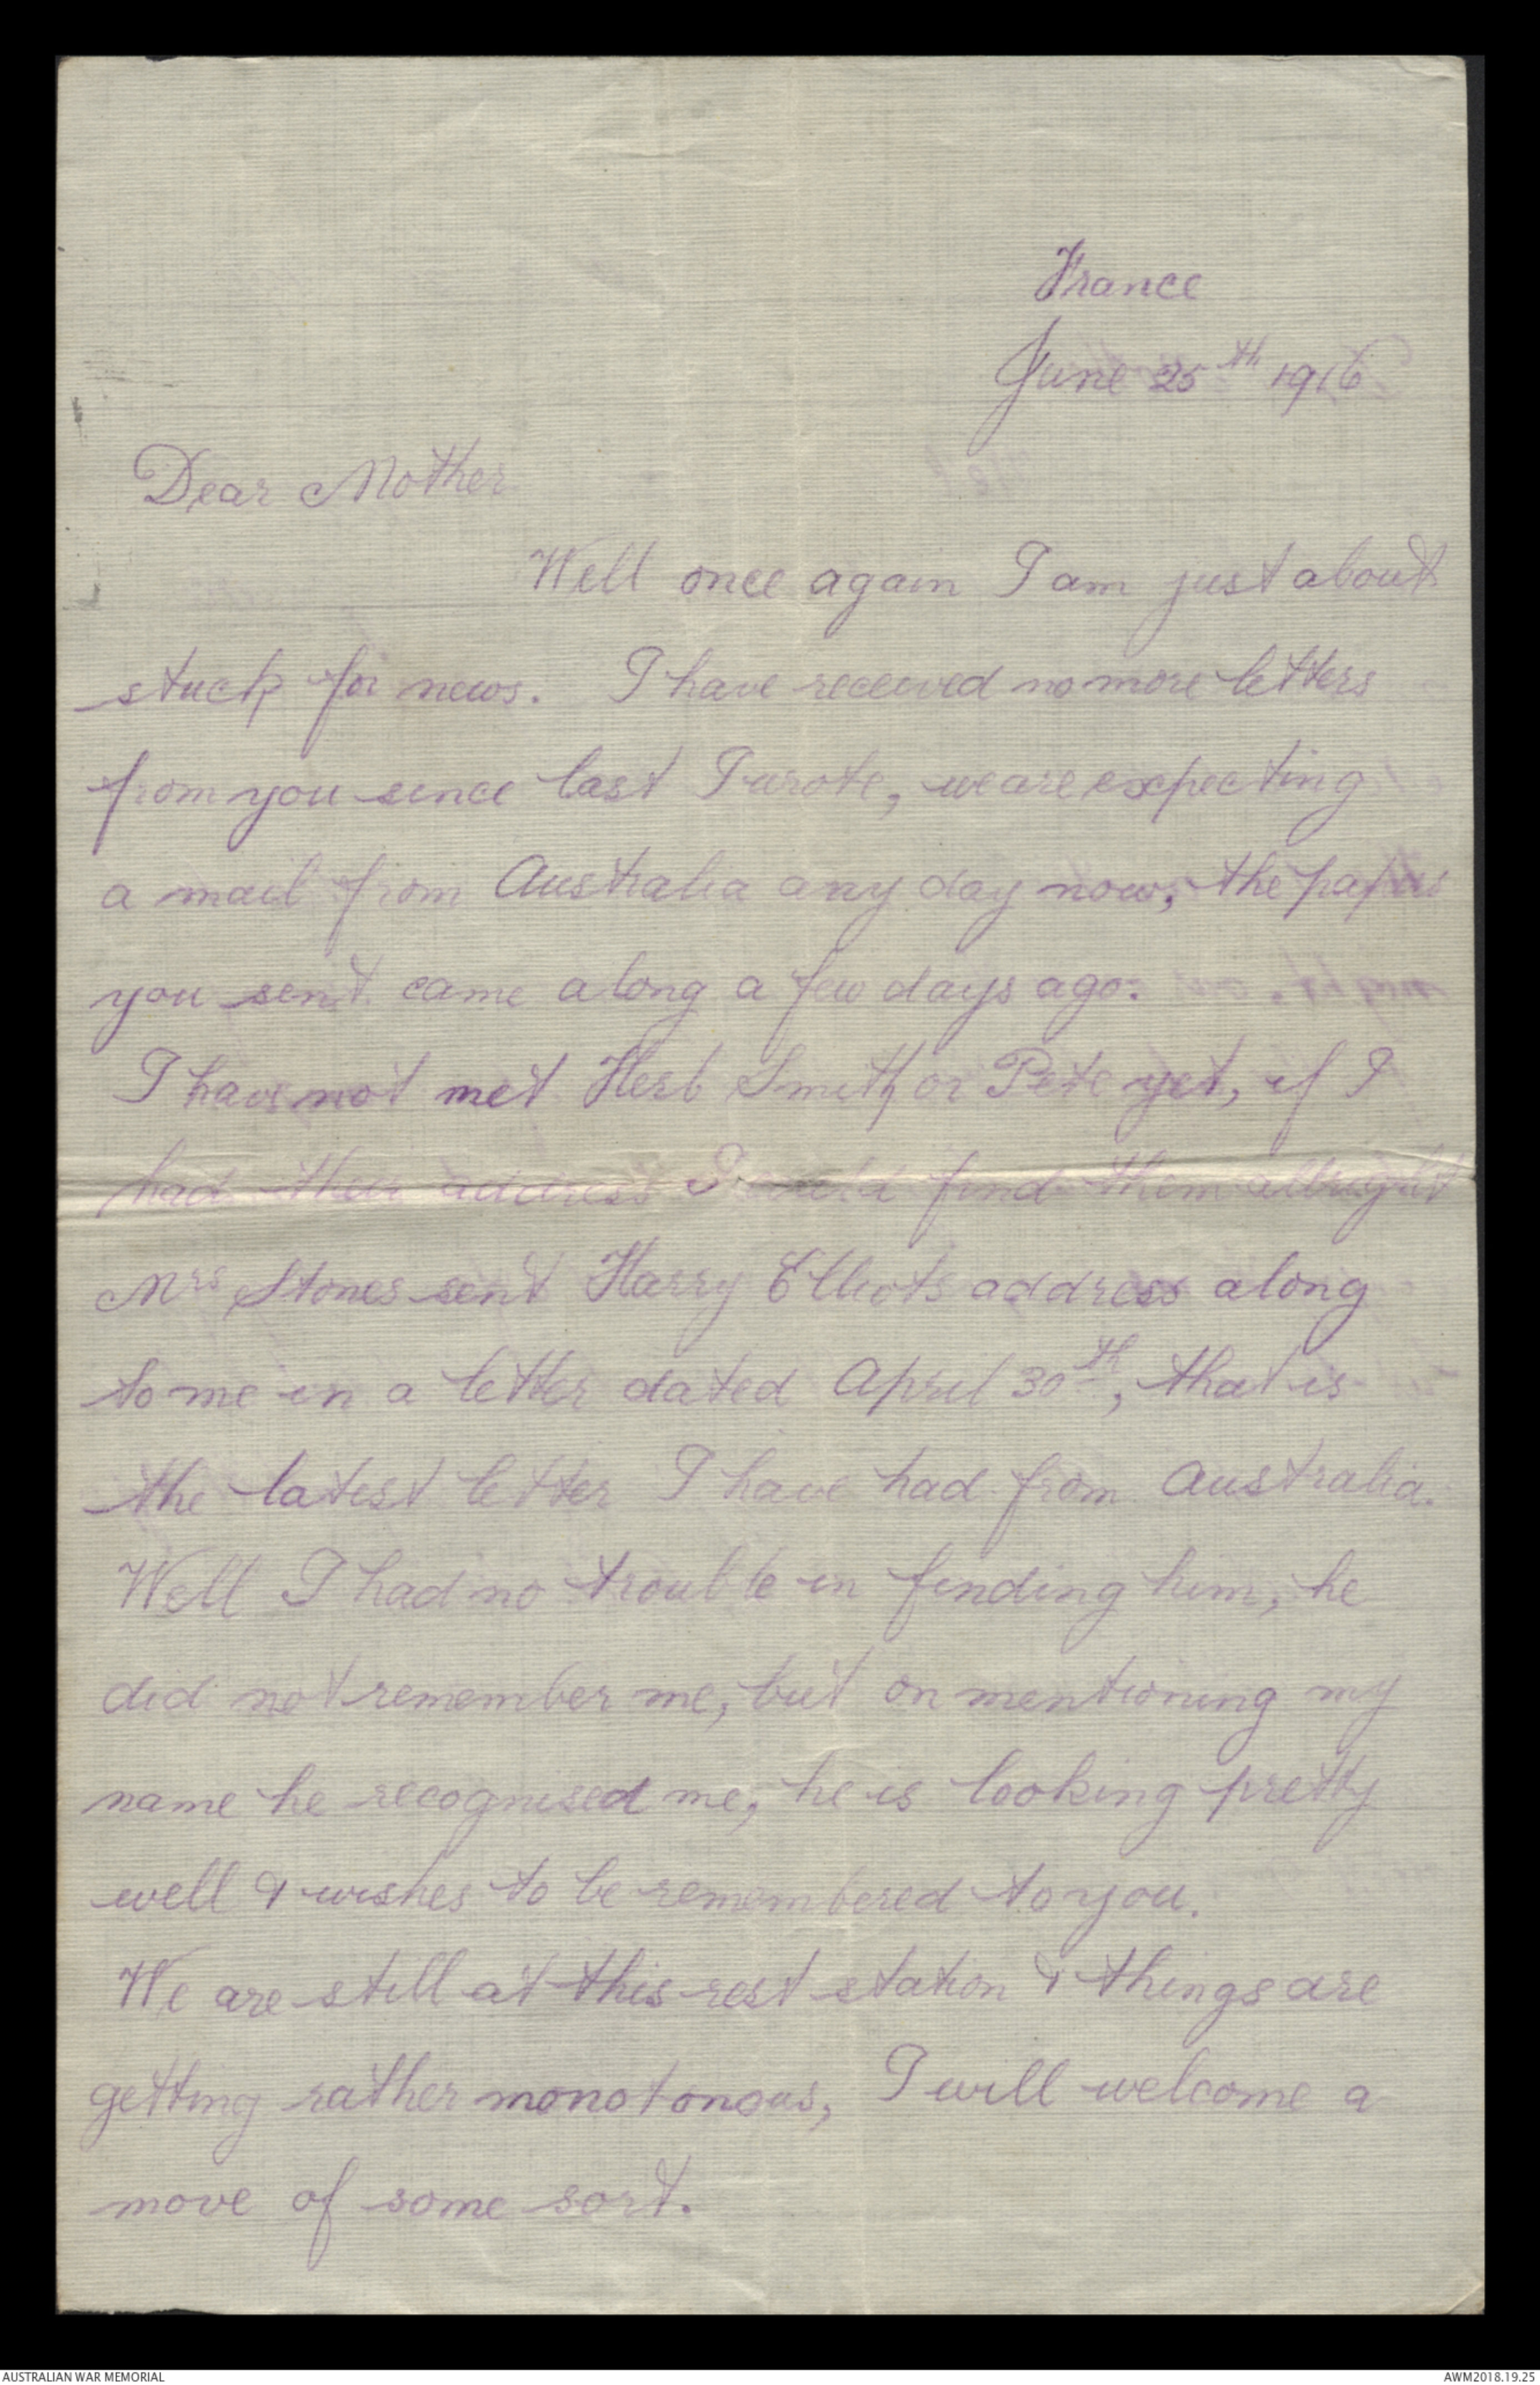 France
June 25th 1916
Dear Mother
Well once again I am just about
stuck for news. I have received no more letters
from you since last I wrote, we are expecting
a mail from Australia any day now, the papers
you sent came along a few days ago.
I have not met Herb Smith or Pete yet, if I
had their address I could find them allright
Mrs Stones sent Harry Elliots address along
to me in a letter dated April 30th, that is
the latest letter I have had from Australia.
Well I had no trouble in finding him, he
did not remember me, but on mentioning my
name he recognised me, he is looking pretty
well & wishes to be remembered to you.
We are still at this rest station & things are
getting rather monotonous, I will welcome a
move of some sort.
AUSTRALIAN WAR MEMORIAL
AWM2018.19.25